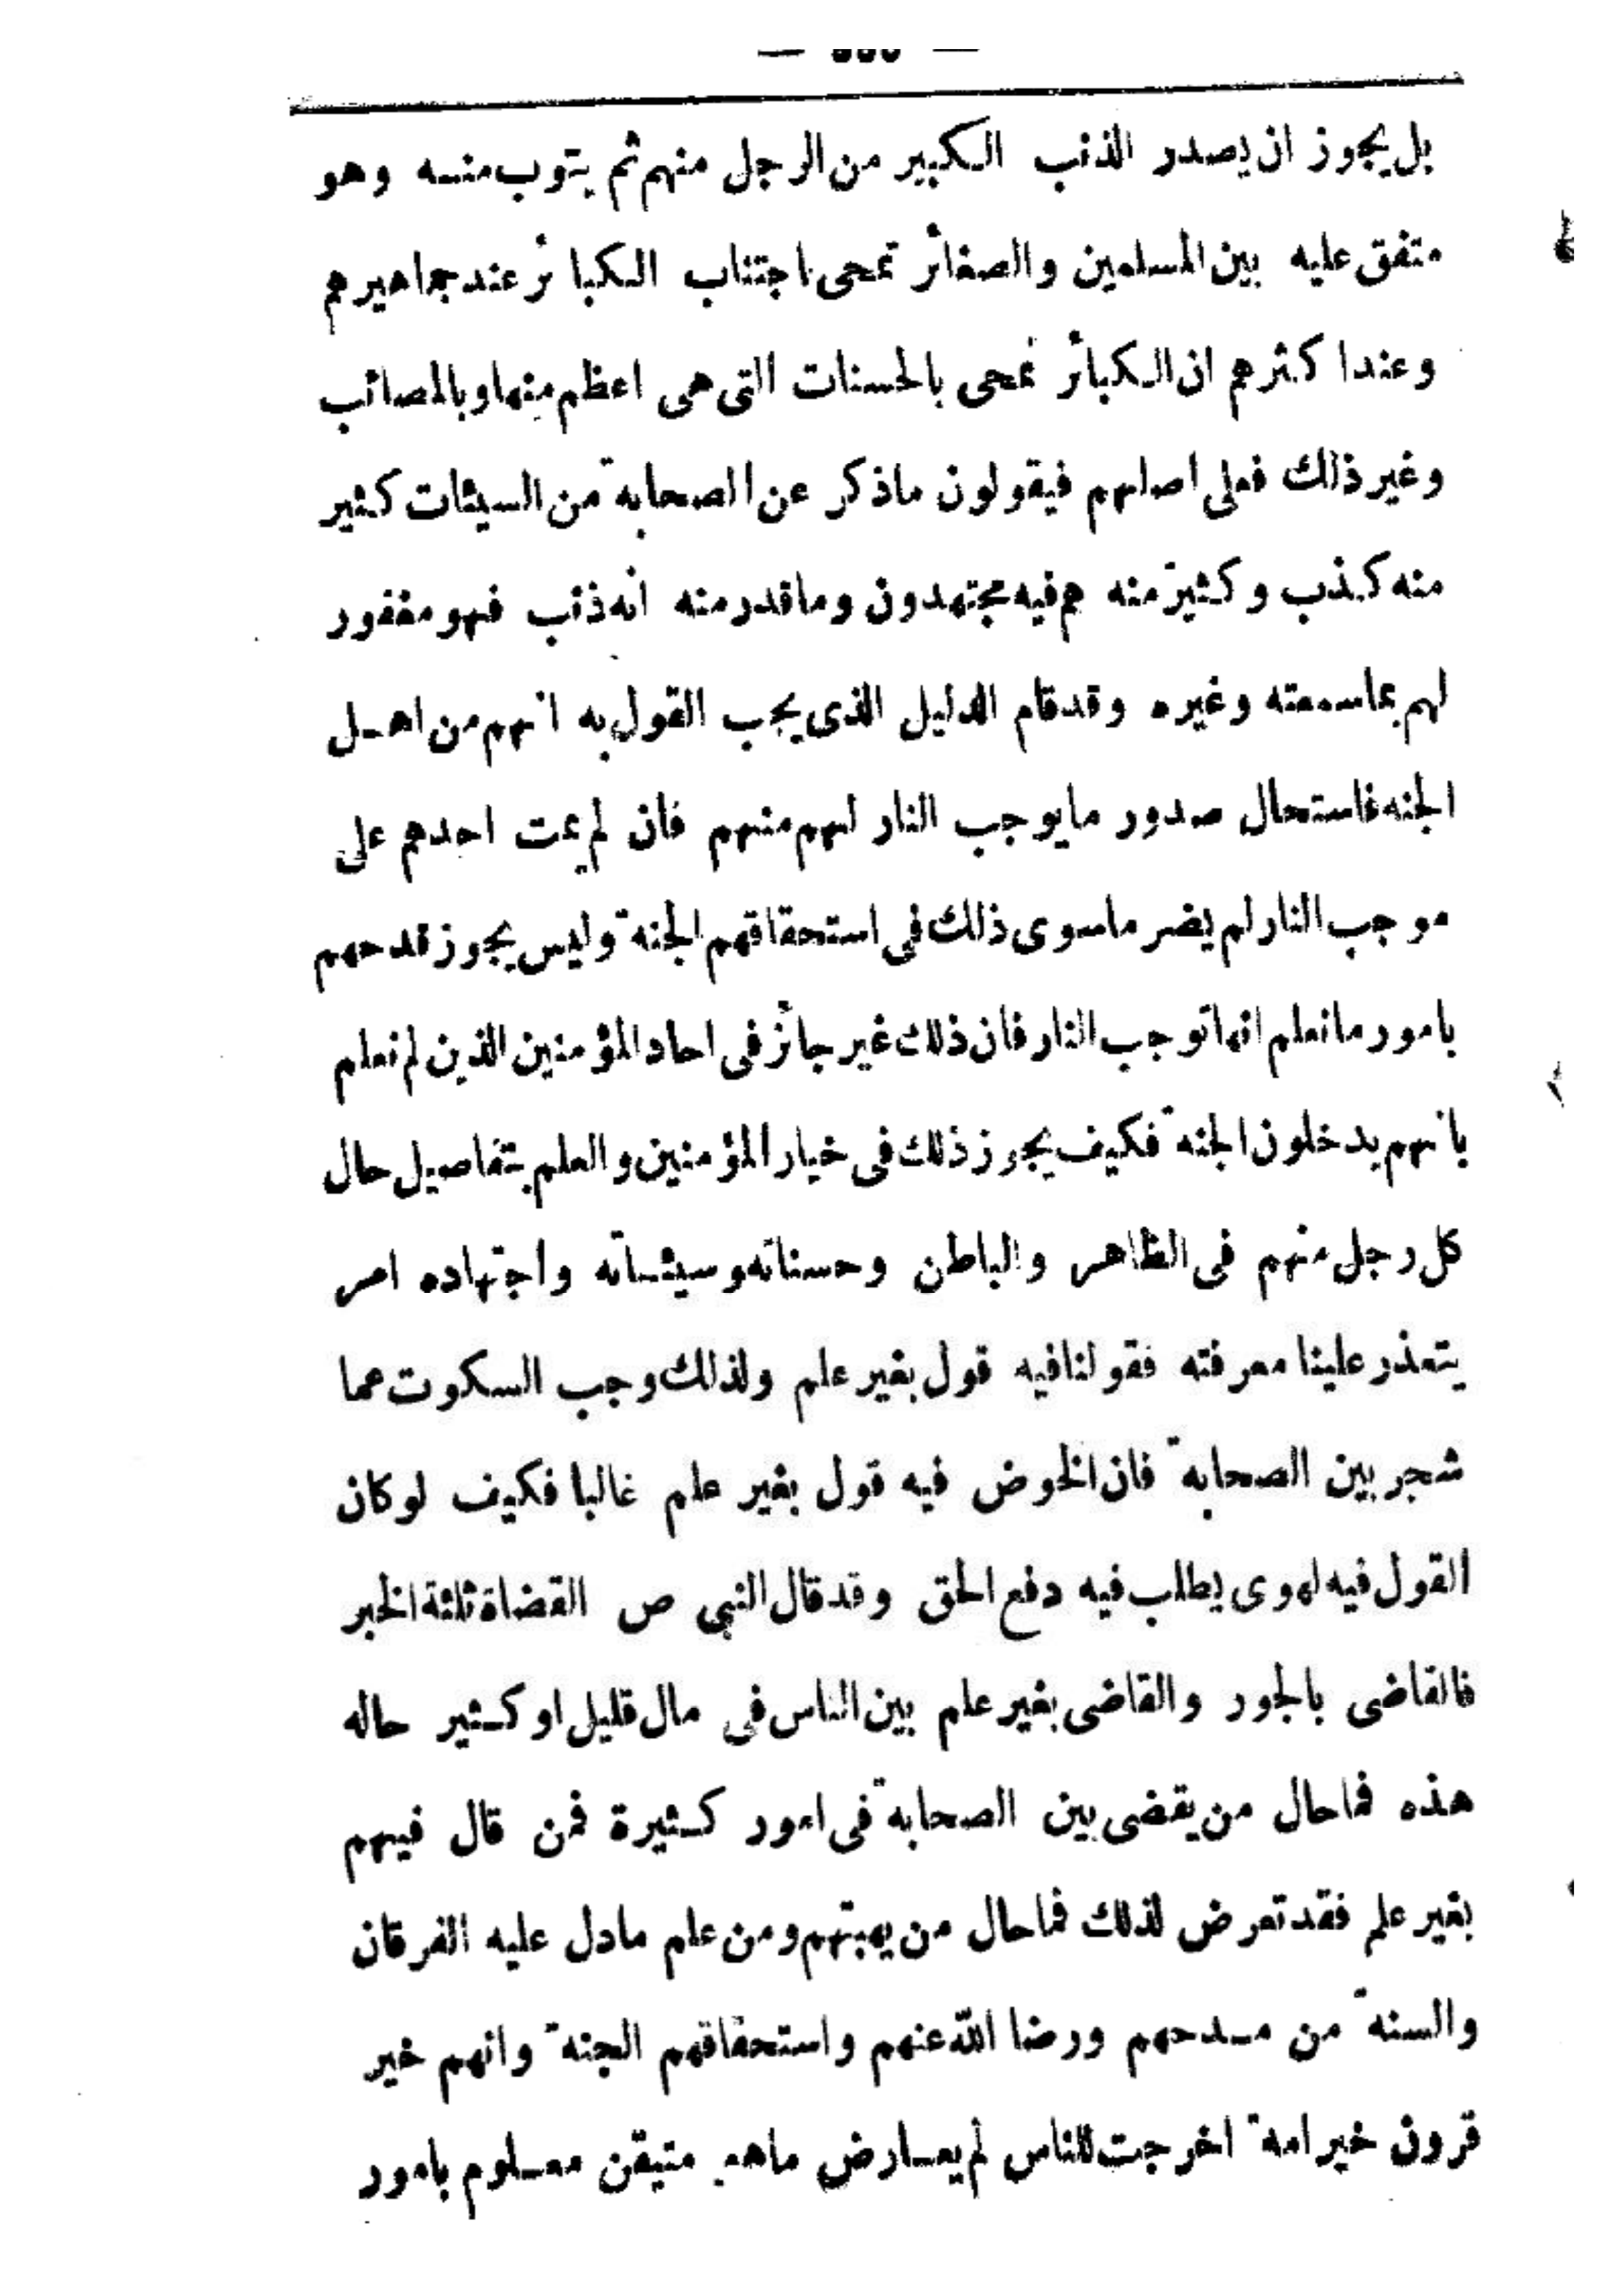 بل يجوز ان يصدر الذنب الكبير من الرجل منهم ثم يتوب منه وهو
متفق عليه بين المسلمين والصغائر تمحى باجتناب الكبائر عند جماهيرهم
وعند اكثرهم ان الكبائر تمحى بالحسنات التى هى اعظم منها وبالمصائب
وغير ذلك فعلى اصلهم فيقولون ماذكر عن الصحابة من السيئات كثير
منه كذب وكثير منه هم فيه مجتهدون وما قدر منه انه ذنب فهو مغفور
لهم بما سمعته وغيره وقد قام الدليل الذى يجب القول به انهم من اهل
الجنه فاستحال صدور ما يوجب النار لهم منهم فان لم يمت احدهم على
موجب النار لم يضر ماسوى ذلك فى استحقاقهم الجنة وليس يجوز قدحهم
بامور مانعلم انها توجب النار فان ذلك غير جائز فى احاد المؤمنين الذين لم نعلم
بانهم يدخلون الجنة فكيف يجوز ذلك فى خيار المؤمنين والعلم بتفاصيل حال
كل رجل منهم فى الظاهر والباطن وحسناته وسيئاته واجتهاده امر
يتعذر علينا معرفته فقولنا فيه قول بغير علم ولذلك وجب السكوت عما
شجر بين الصحابة فان الخوض فيه قول بغير علم غالبا فكيف لو كان
القول فيه لهوى يطلب فيه دفع الحق وقد قال النبى ص القضاة ثلثة الخبر
فالقاضى بالجور والقاضى بغير علم بين الناس فى مال قليل او كثير حاله
هذه فماحال من يقضى بين الصحابة فى امور كثيرة فمن قال فيهم
بغير علم فقد تعرض لذلك فماحال من يبهتهم ومن علم مادل عليه الفرقان
والسنة من مدحهم ورضا الله عنهم واستحقاقهم الجنة وانهم خير
قرون خير امة اخرجت للناس لم يعارض ماهو متيقن معلوم بامور